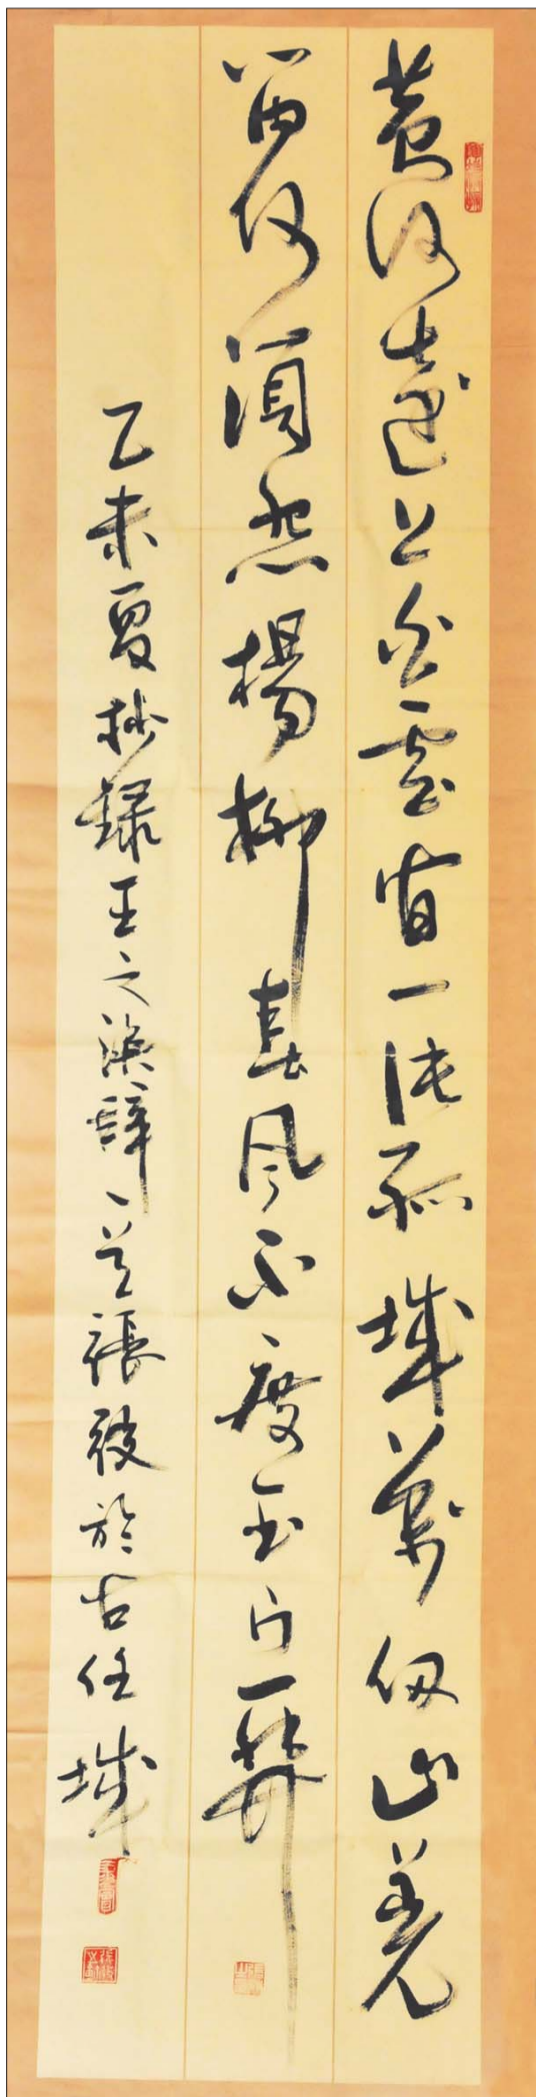 黄河遠上白雲間一片孤城萬仞山羌
笛何須怨楊柳春風不度玉門關
乙未夏抄録王之渙辭一首張於古任城